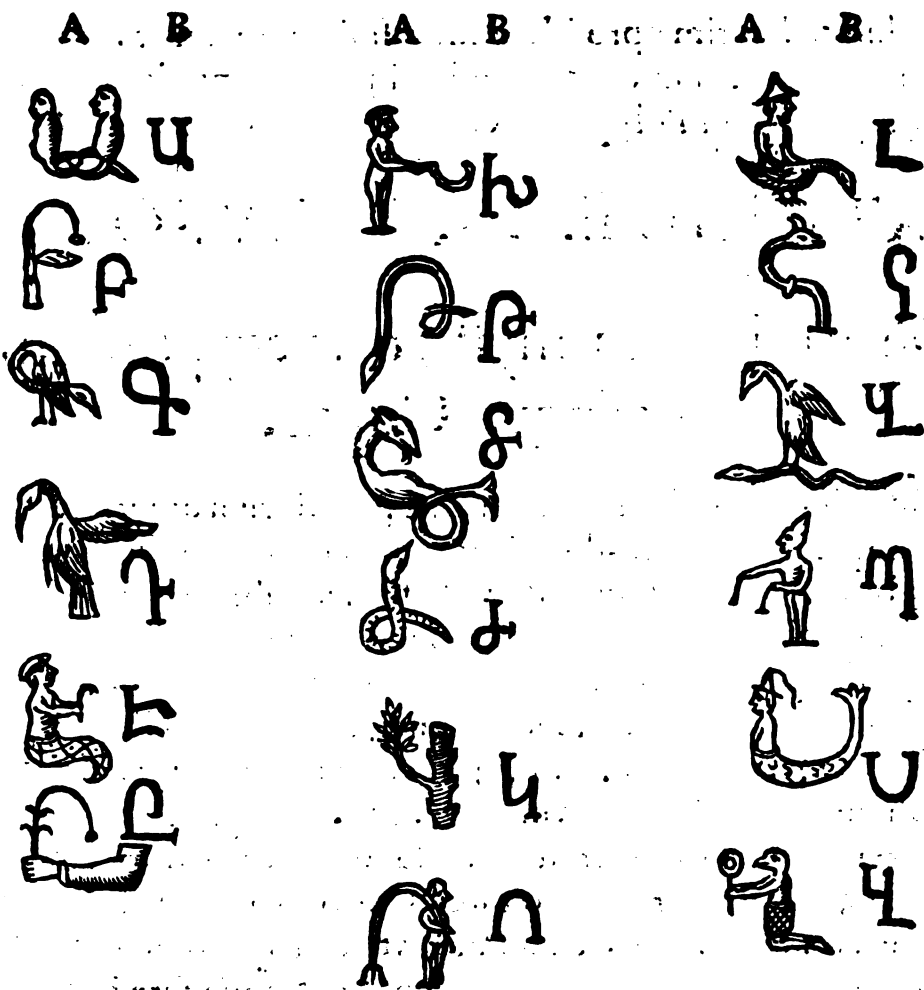 A B
Ա
Բ
Գ
Դ
Է
Ը
A B
Խ
Թ
Ֆ
Ժ
Կ
Ո
A B
Լ
Վ
Պ
Ս
Վ